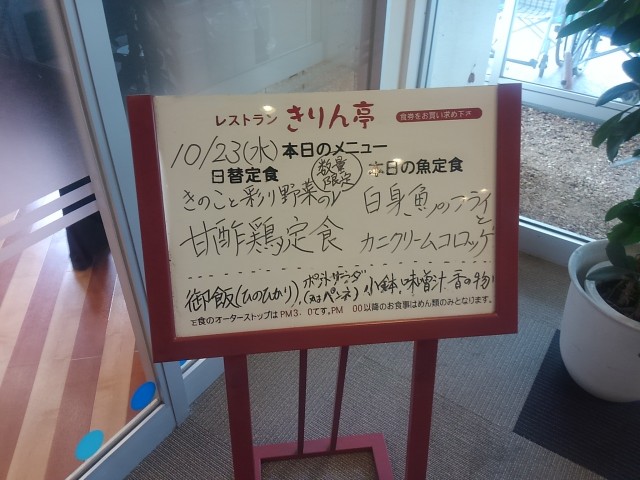 レストラン きりん亭 食券をお買い求め下さ
10/23(水) 本日のメニュー
日替定食 数量限定 本日の魚定食
きのこと彩り野菜の 白身魚のフライと
甘酢鶏定食 カニクリームコロッケ
御飯(ひのひかり) ポテトサラダ(又はペンネ) 小鉢 味噌汁 香の物
定食のオーターストップは PM3. 0です。PM 00以降のお食事はめん類のみとなります。